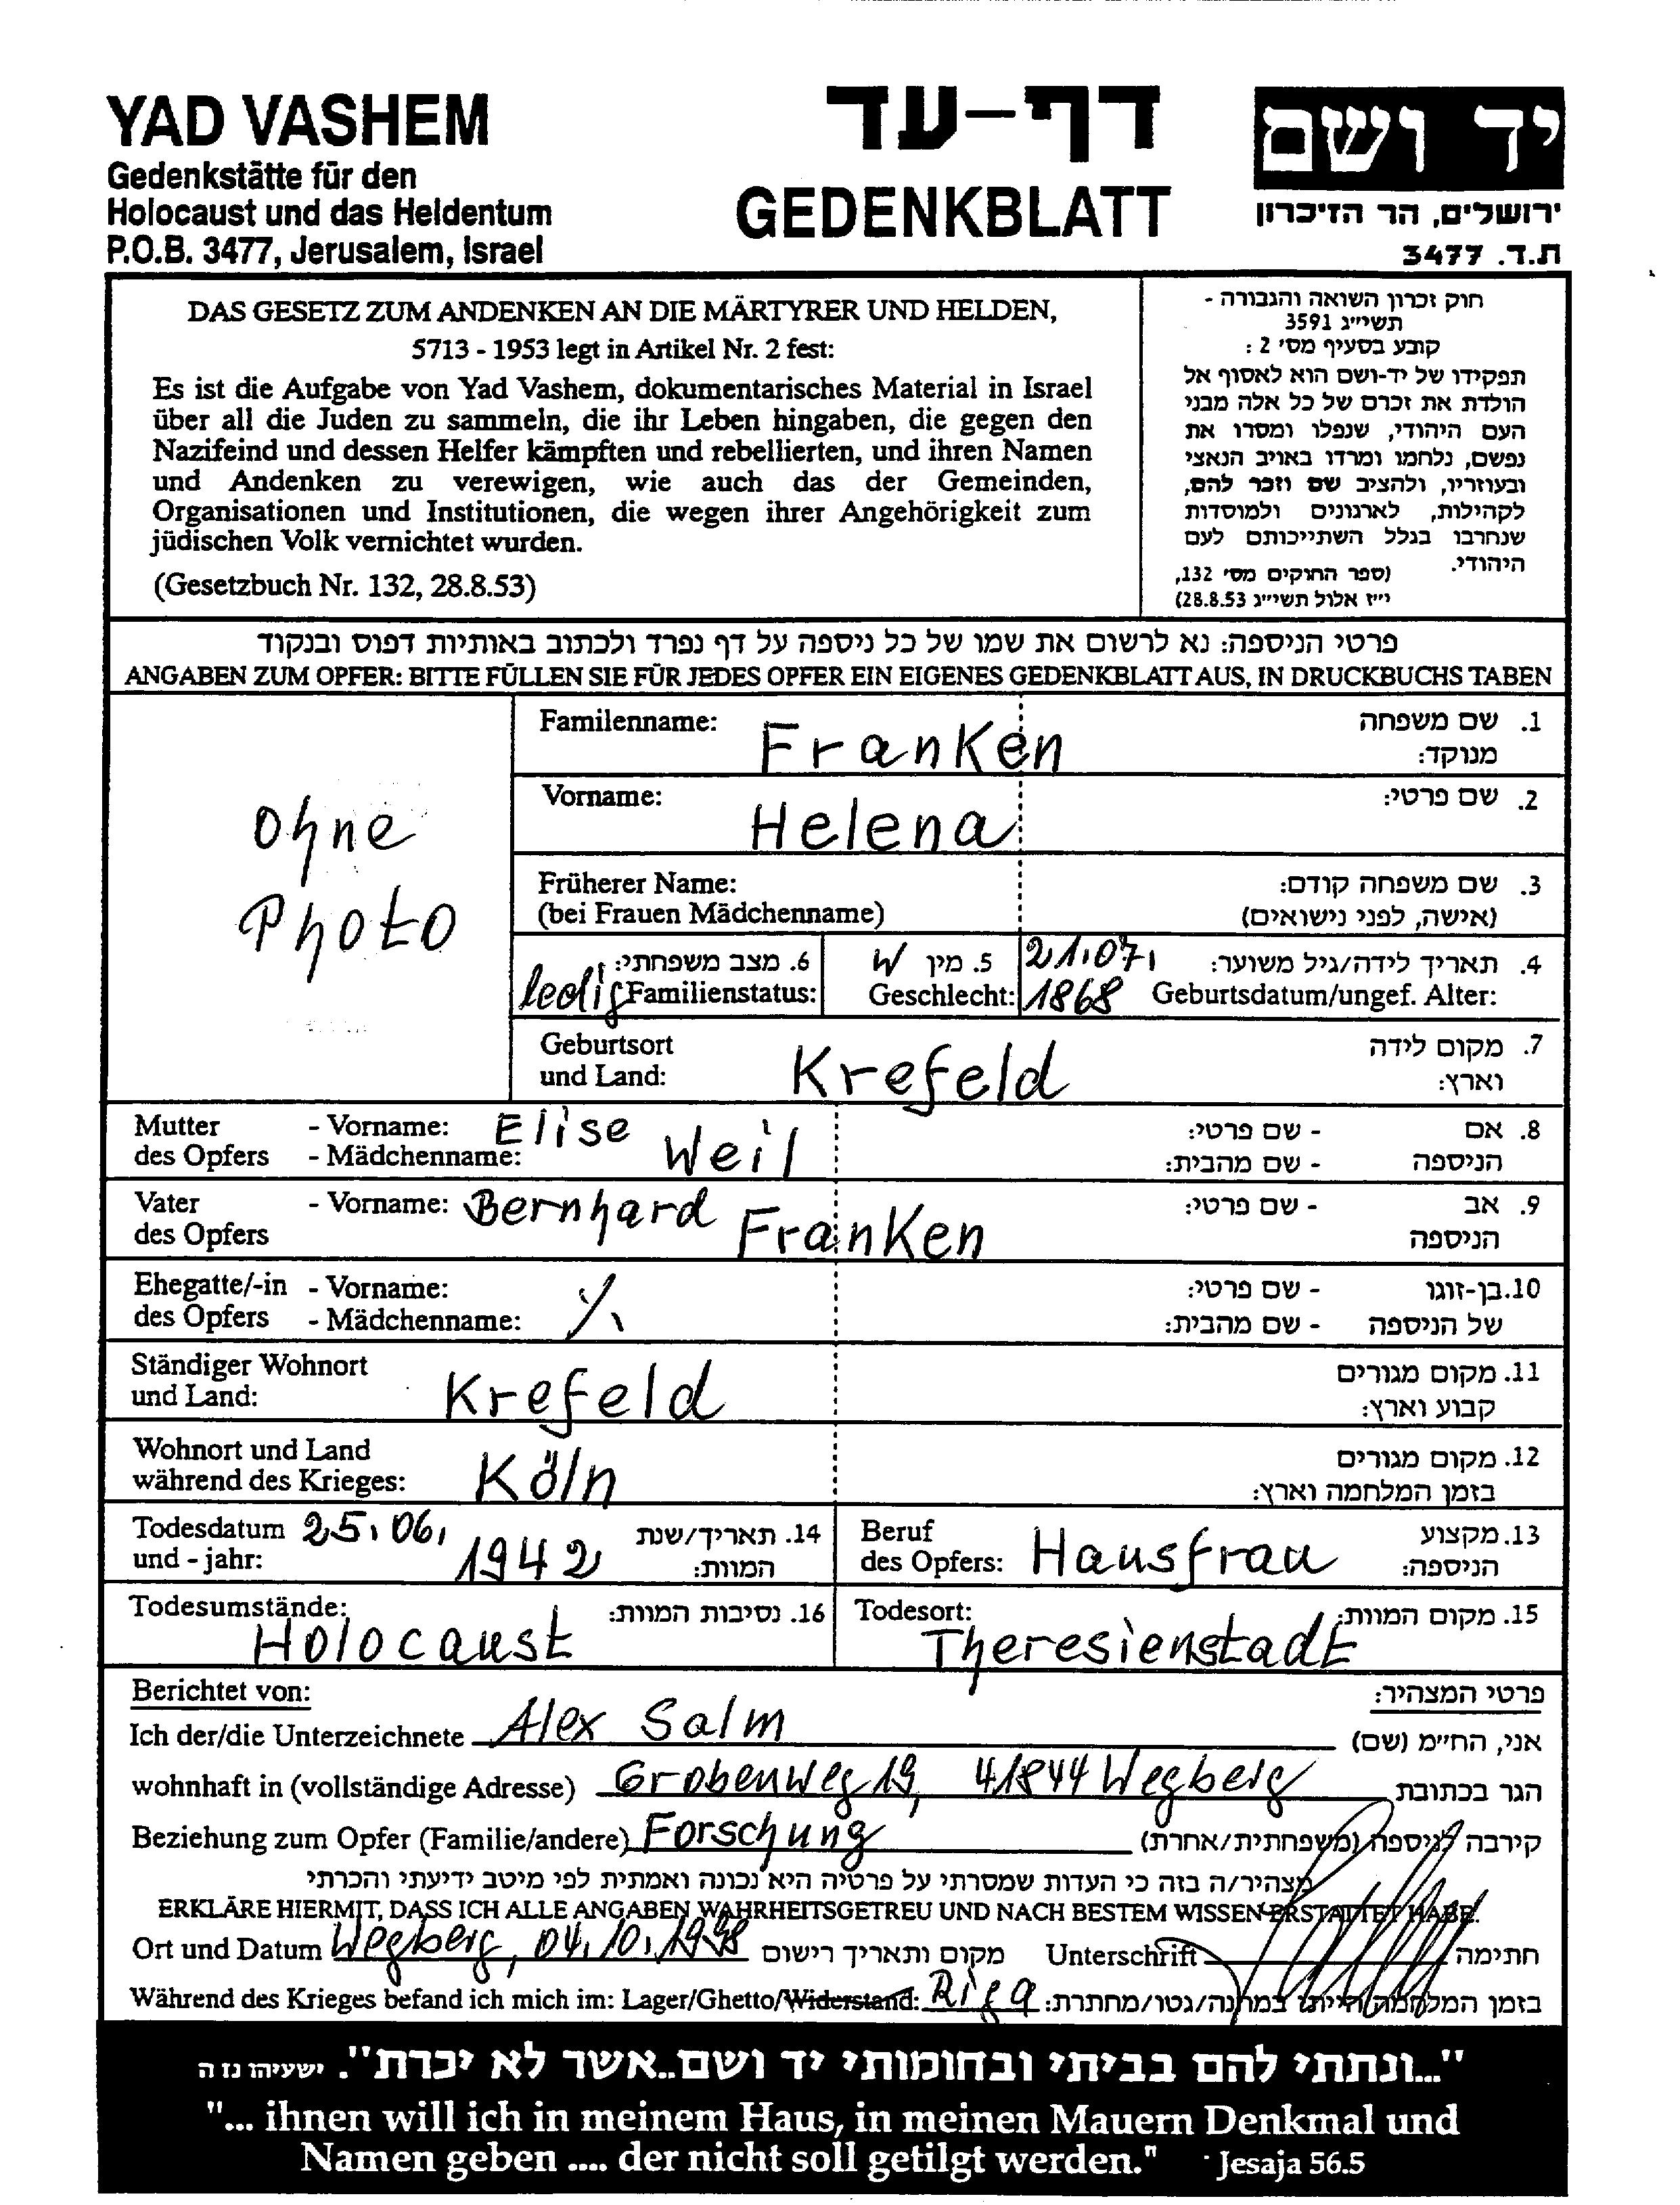 YAD VASHEM
Gedenkstätte für den
Holocaust und das Heldentum
P.O.B. 3477, Jerusalem, Israel
דף-עד
GEDENKBLATT
יד ושם
ירושלים, הר הזיכרון
ת.ד. 3477
DAS GESETZ ZUM ANDENKEN AN DIE MÄRTYRER UND HELDEN,
5713 - 1953 legt in Artikel Nr. 2 fest:
Es ist die Aufgabe von Yad Vashem, dokumentarisches Material in Israel
über all die Juden zu sammeln, die ihr Leben hingaben, die gegen den
Nazifeind und dessen Helfer kämpften und rebellierten, und ihren Namen
und Andenken zu verewigen, wie auch das der Gemeinden,
Organisationen und Institutionen, die wegen ihrer Angehörigkeit zum
jüdischen Volk vernichtet wurden.
(Gesetzbuch Nr. 132, 28.8.53)
חוק זכרון השואה והגבורה -
תשי״ג 3591
קובע בסעיף מס׳ 2 :
תפקידו של יד-ושם הוא לאסוף אל
הולדת את זכרם של כל אלה מבני
העם היהודי, שנפלו ומסרו את
נפשם, נלחמו ומרדו באויב הנאצי
ובעוזריו, ולהציב שם וזכר להם,
לקהילות, לארגונים ולמוסדות
שנחרבו בגלל השתייכותם לעם
היהודי.
(ספר החוקים מס׳ 132,
י״ז אלול תשי״ג 28.8.53)
פרטי הניספה: נא לרשום את שמו של כל ניספה על דף נפרד ולכתוב באותיות דפוס ובנקוד
ANGABEN ZUM OPFER: BITTE FÜLLEN SIE FÜR JEDES OPFER EIN EIGENES GEDENKBLATT AUS, IN DRUCKBUCHSTABEN
ohne
Photo
Familenname: Franken 1. שם משפחה
מנוקד:
Vorname: Helena 2. שם פרטי:
Früherer Name: 3. שם משפחה קודם:
(bei Frauen Mädchenname) (אישה, לפני נישואים)
6. מצב משפחתי: 5. מין W 21.07. 4. תאריך לידה/גיל משוער:
ledig Familienstatus: Geschlecht: 1868 Geburtsdatum/ungef. Alter:
Geburtsort Krefeld 7. מקום לידה
und Land: וארץ:
Mutter - Vorname: Elise - שם פרטי: 8. אם
des Opfers - Mädchenname: Weil - שם מהבית: הניספה
Vater - Vorname: Bernhard Franken - שם פרטי: 9. אב
des Opfers הניספה
Ehegatte/-in - Vorname: ⁒ - שם פרטי: 10. בן-זוגו
des Opfers - Mädchenname: - שם מהבית: של הניספה
Ständiger Wohnort Krefeld 11. מקום מגורים
und Land: קבוע וארץ:
Wohnort und Land Köln 12. מקום מגורים
während des Krieges: בזמן המלחמה וארץ:
Todesdatum 25.06. 14. תאריך/שנת Beruf 13. מקצוע
und - jahr: 1942 המוות: des Opfers: Hausfrau הניספה:
Todesumstände: 16. נסיבות המוות: Todesort: 15. מקום המוות:
Holocaust Theresienstadt
Berichtet von: פרטי המצהיר:
Ich der/die Unterzeichnete Alex Salm אני, הח״מ (שם)
wohnhaft in (vollständige Adresse) Grobenweg 19, 41844 Wegberg הגר בכתובת
Beziehung zum Opfer (Familie/andere) Forschung קירבה לניספה (משפחתית/אחרת)
מצהיר/ה בזה כי העדות שמסרתי על פרטיה היא נכונה ואמתית לפי מיטב ידיעתי והכרתי
ERKLÄRE HIERMIT, DASS ICH ALLE ANGABEN WAHRHEITSGETREU UND NACH BESTEM WISSEN ERSTATTET HABE.
Ort und Datum Wegberg, 04.10.1998 מקום ותאריך רישום Unterschrift חתימה
Während des Krieges befand ich mich im: Lager/Ghetto/Widerstand: Riga בזמן המלחמה הייתי במחנה/גטו/מחתרת:
"...ונתתי להם בביתי ובחומותי יד ושם..אשר לא יכרת". ישעיהו נו ה
"... ihnen will ich in meinem Haus, in meinen Mauern Denkmal und
Namen geben .... der nicht soll getilgt werden." Jesaja 56.5